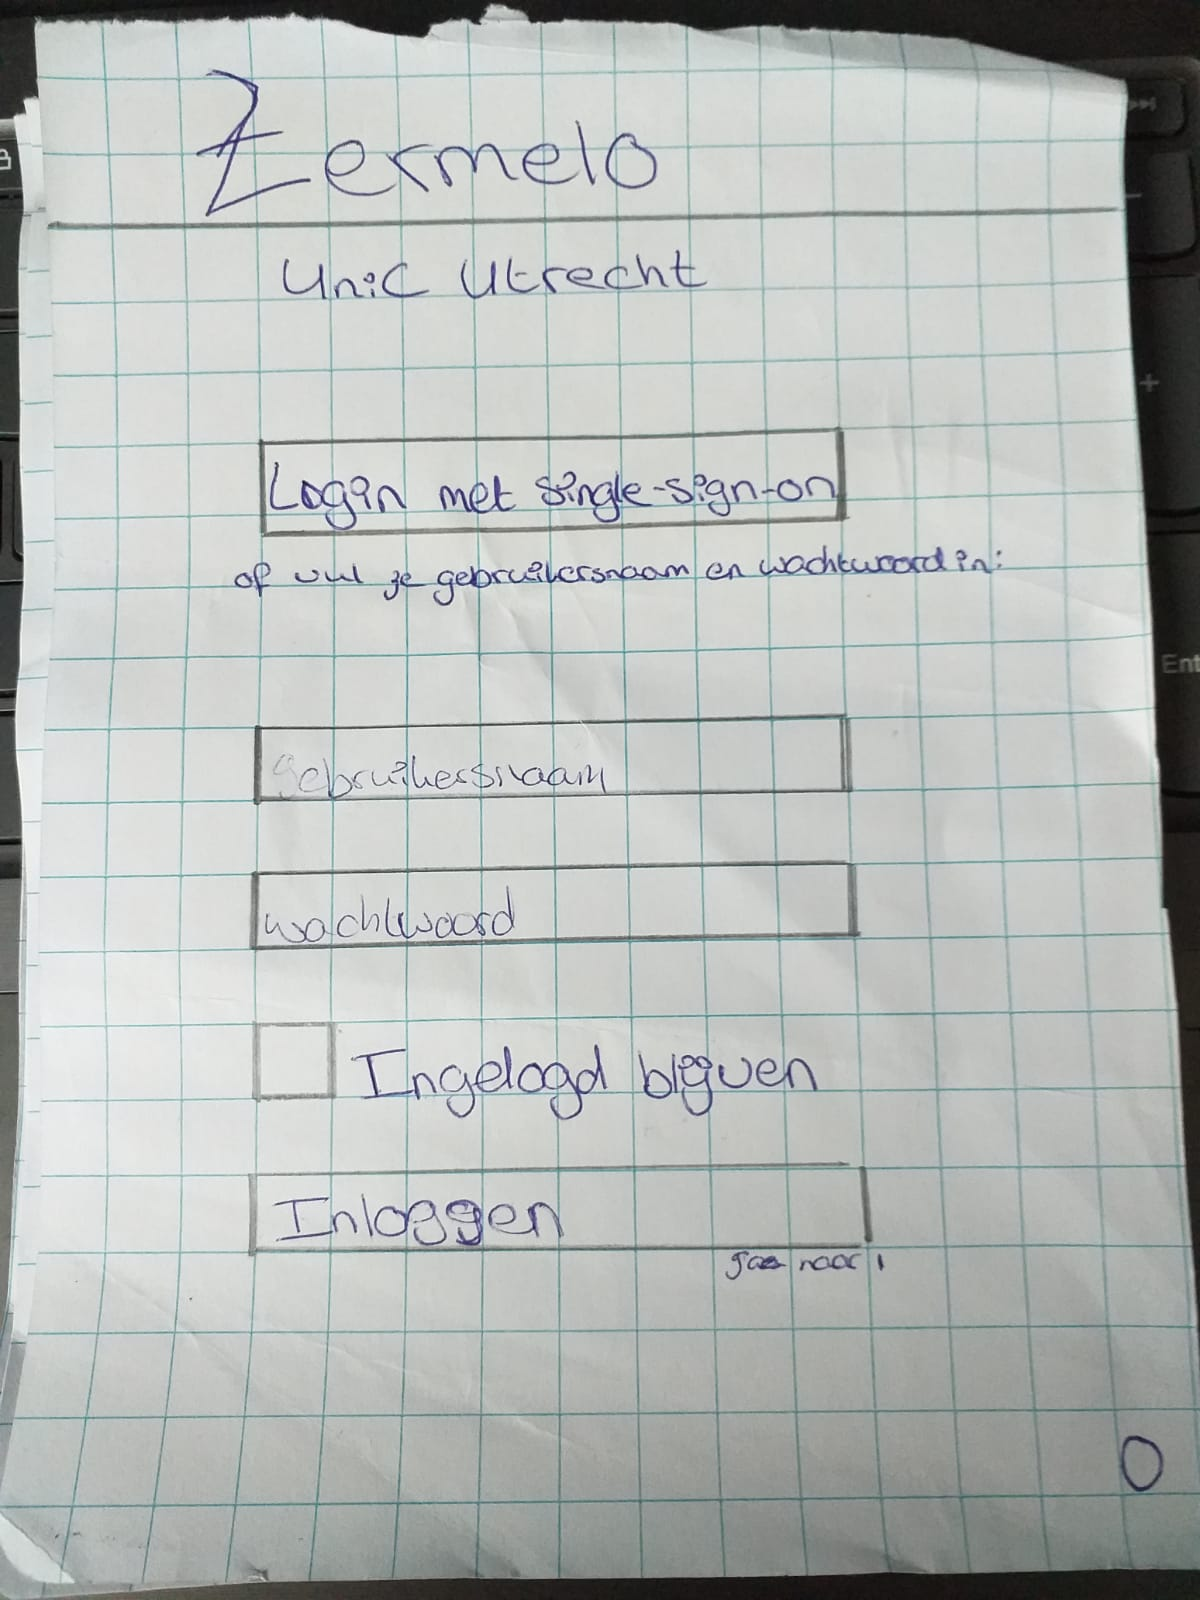 Zermelo
UniC Utrecht
Login met single-sign-on
of vul je gebruikersnaam en wachtwoord in:
gebruikersnaam
wachtwoord
Ingelogd blijven
Inloggen
gaa naar 1
0
Ent
+